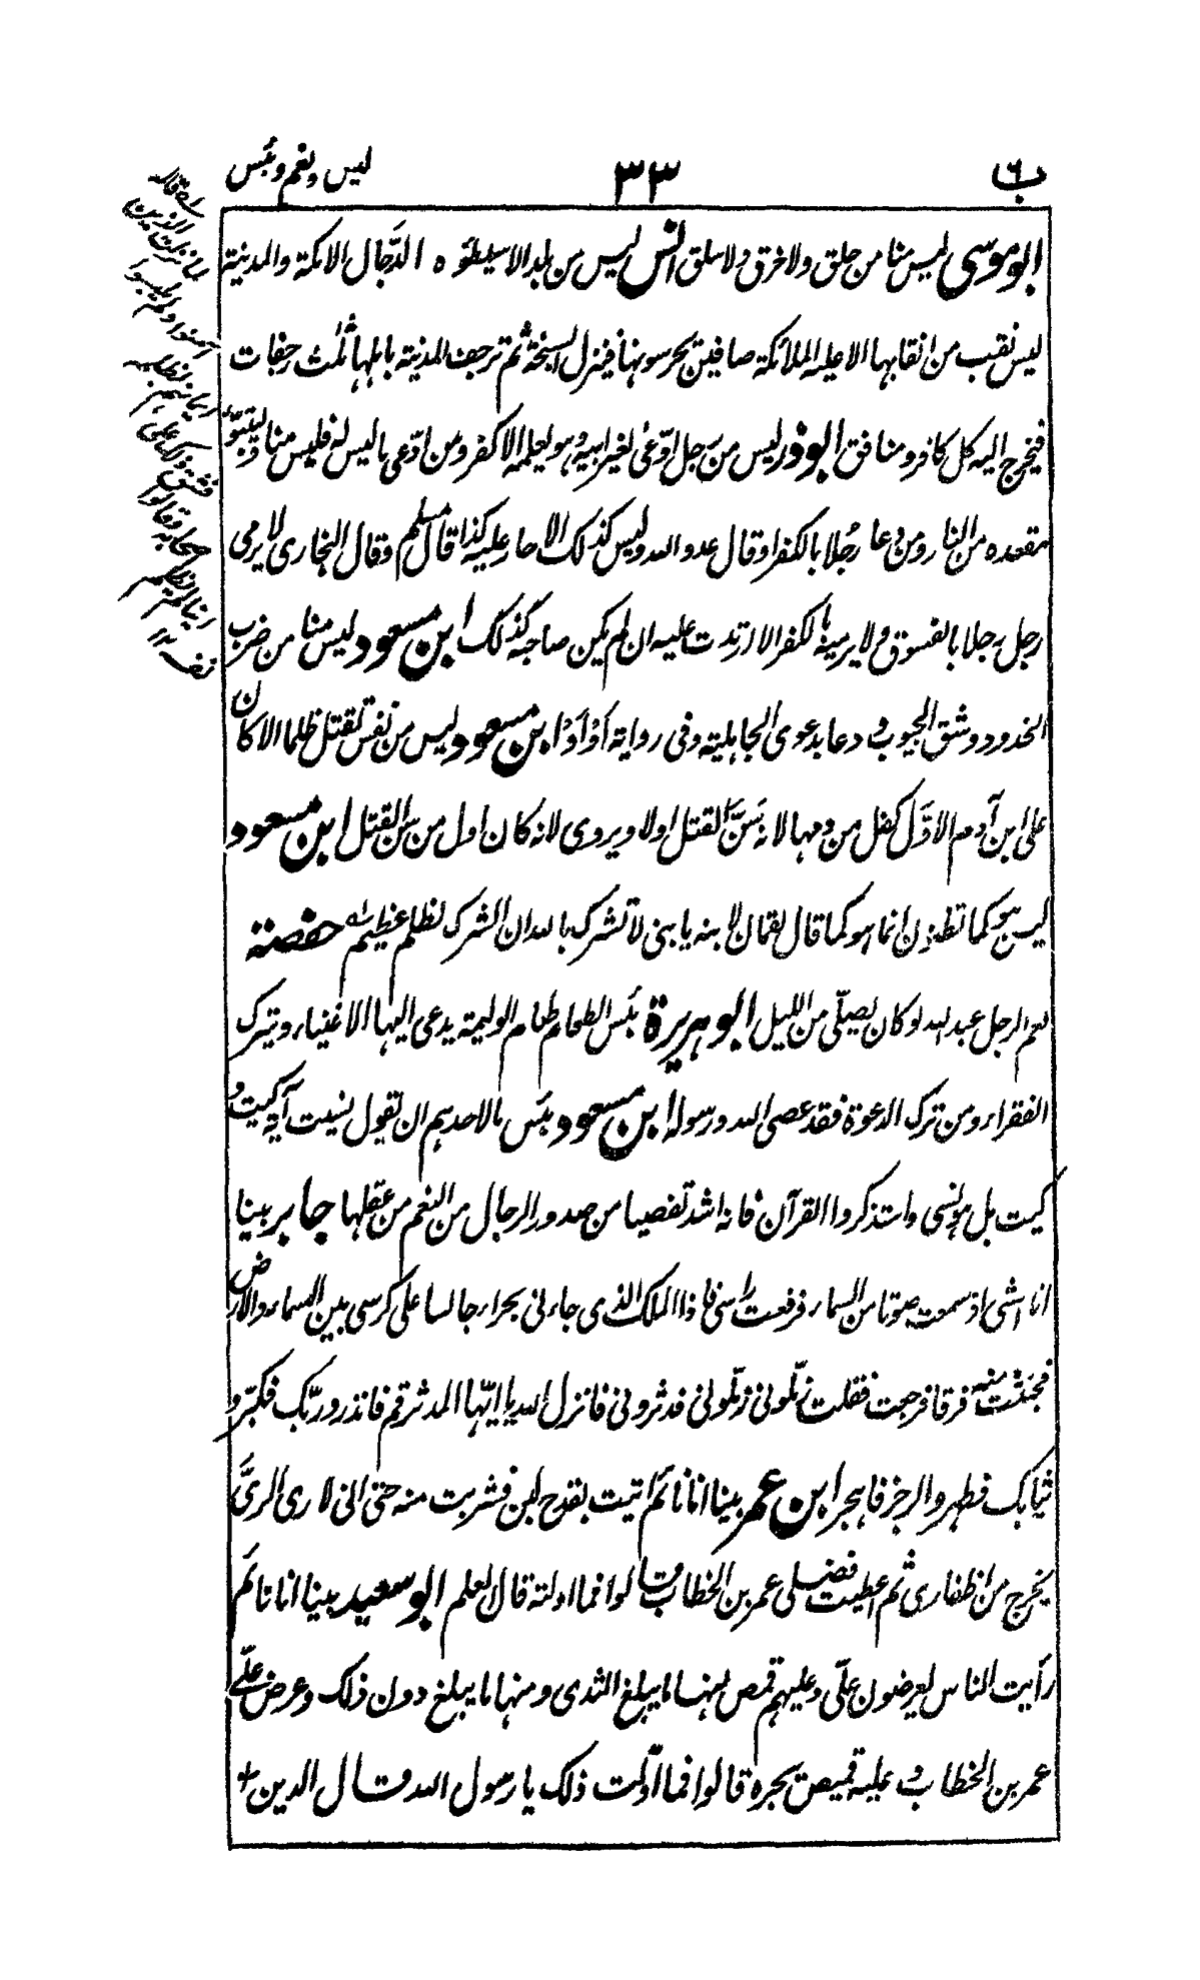 ب ٦
٣٣
ليس ونعم وبئس
ابو موسى ليس منا من حلق ولا خرق ولا سلق انس ليس من بلد الا سيطؤه الدَّجال الا مكة والمدينة
ليس نقب من انقابها الا عليه الملائكة صافين يحرسونها فينزل السبخة ثم ترجف المدينة باهلها ثلث رجفات
فيخرج اليه كل كافر ومنافق ابوذر ليس من رجل ادّعى لغير ابيه وهو يعلمه الا كفر ومن ادّعى ما ليس له فليس منا وليتبوّأ
مقعده من النار ومن دعا رجلا بالكفر او قال عدو الله وليس كذلك الا حار عليه كذا قال مسلم وقال البخارى لا يرمى
رجل رجلا بالفسوق ولا يرميه بالكفر الا ارتدت عليه ان لم يكن صاحبه كذلك ابن مسعود ليس منا من ضرب
الخدود وشق الجيوب و دعا بدعوى الجاهلية وفى رواية أوْ أوْ ابن مسعود ليس من نفس تقتل ظلما الا كان
على ابن آدم الاوّل كفل من دمها لانه سَنَّ القتل اولا ويروى لانه كان اول من سن القتل ابن مسعود
ليس هو كما تظنون انما هو كما قال لقمان لابنه يا بنى لا تشرك بالله ان الشرك لظلم عظيم حفصة
نعم الرجل عبد الله لو كان يصلّى من الليل ابو هريرة بئس الطعام طعام الوليمة يدعى اليها الاغنياء ويترك
الفقراء ومن ترك الدعوة فقد عصى الله ورسوله ابن مسعود بئس ما لاحدهم ان يقول نسيت آية كيت و
كيت بل هو نسى واستذكروا القرآن فانه اشد تفصيا من صدور الرجال من النعم من عقلها جابر بينا
انا امشى اذ سمعت صوتا من السماء فرفعت راسى فاذا الملك الذى جاءنى بحراء جالسا على كرسى بين السماء والارض
فجئثت منه فرقا فرجعت فقلت زمّلونى زمّلونى فدثرونى فانزل الله يا ايّها المدثر قم فانذر وربّك فكبّر و
ثيابك فطهر والرجز فاهجر ابن عمر بينا انا نائم اتيت بقدح لبن فشربت منه حتى انى لارى الرىَّ
يخرج من اظفارى ثم اعطيت فضلى عمر بن الخطاب قالوا فما اولته قال العلم ابو سعيد بينا انا نائم
رأيت الناس يعرضون علىّ وعليهم قمص منها ما يبلغ الثدى ومنها ما يبلغ دون ذلك وعرض علىّ
عمر بن الخطاب و عليه قميص يجره قالوا فما اوّلت ذلك يا رسول الله قال الدين
قاله
لما نزلت الذين
آمنوا ولم يلبسوا
ايمانهم بظلم
فشق ذلك على
الصحابة وقالوا
اينا لم يظلم
نفسه ١٢